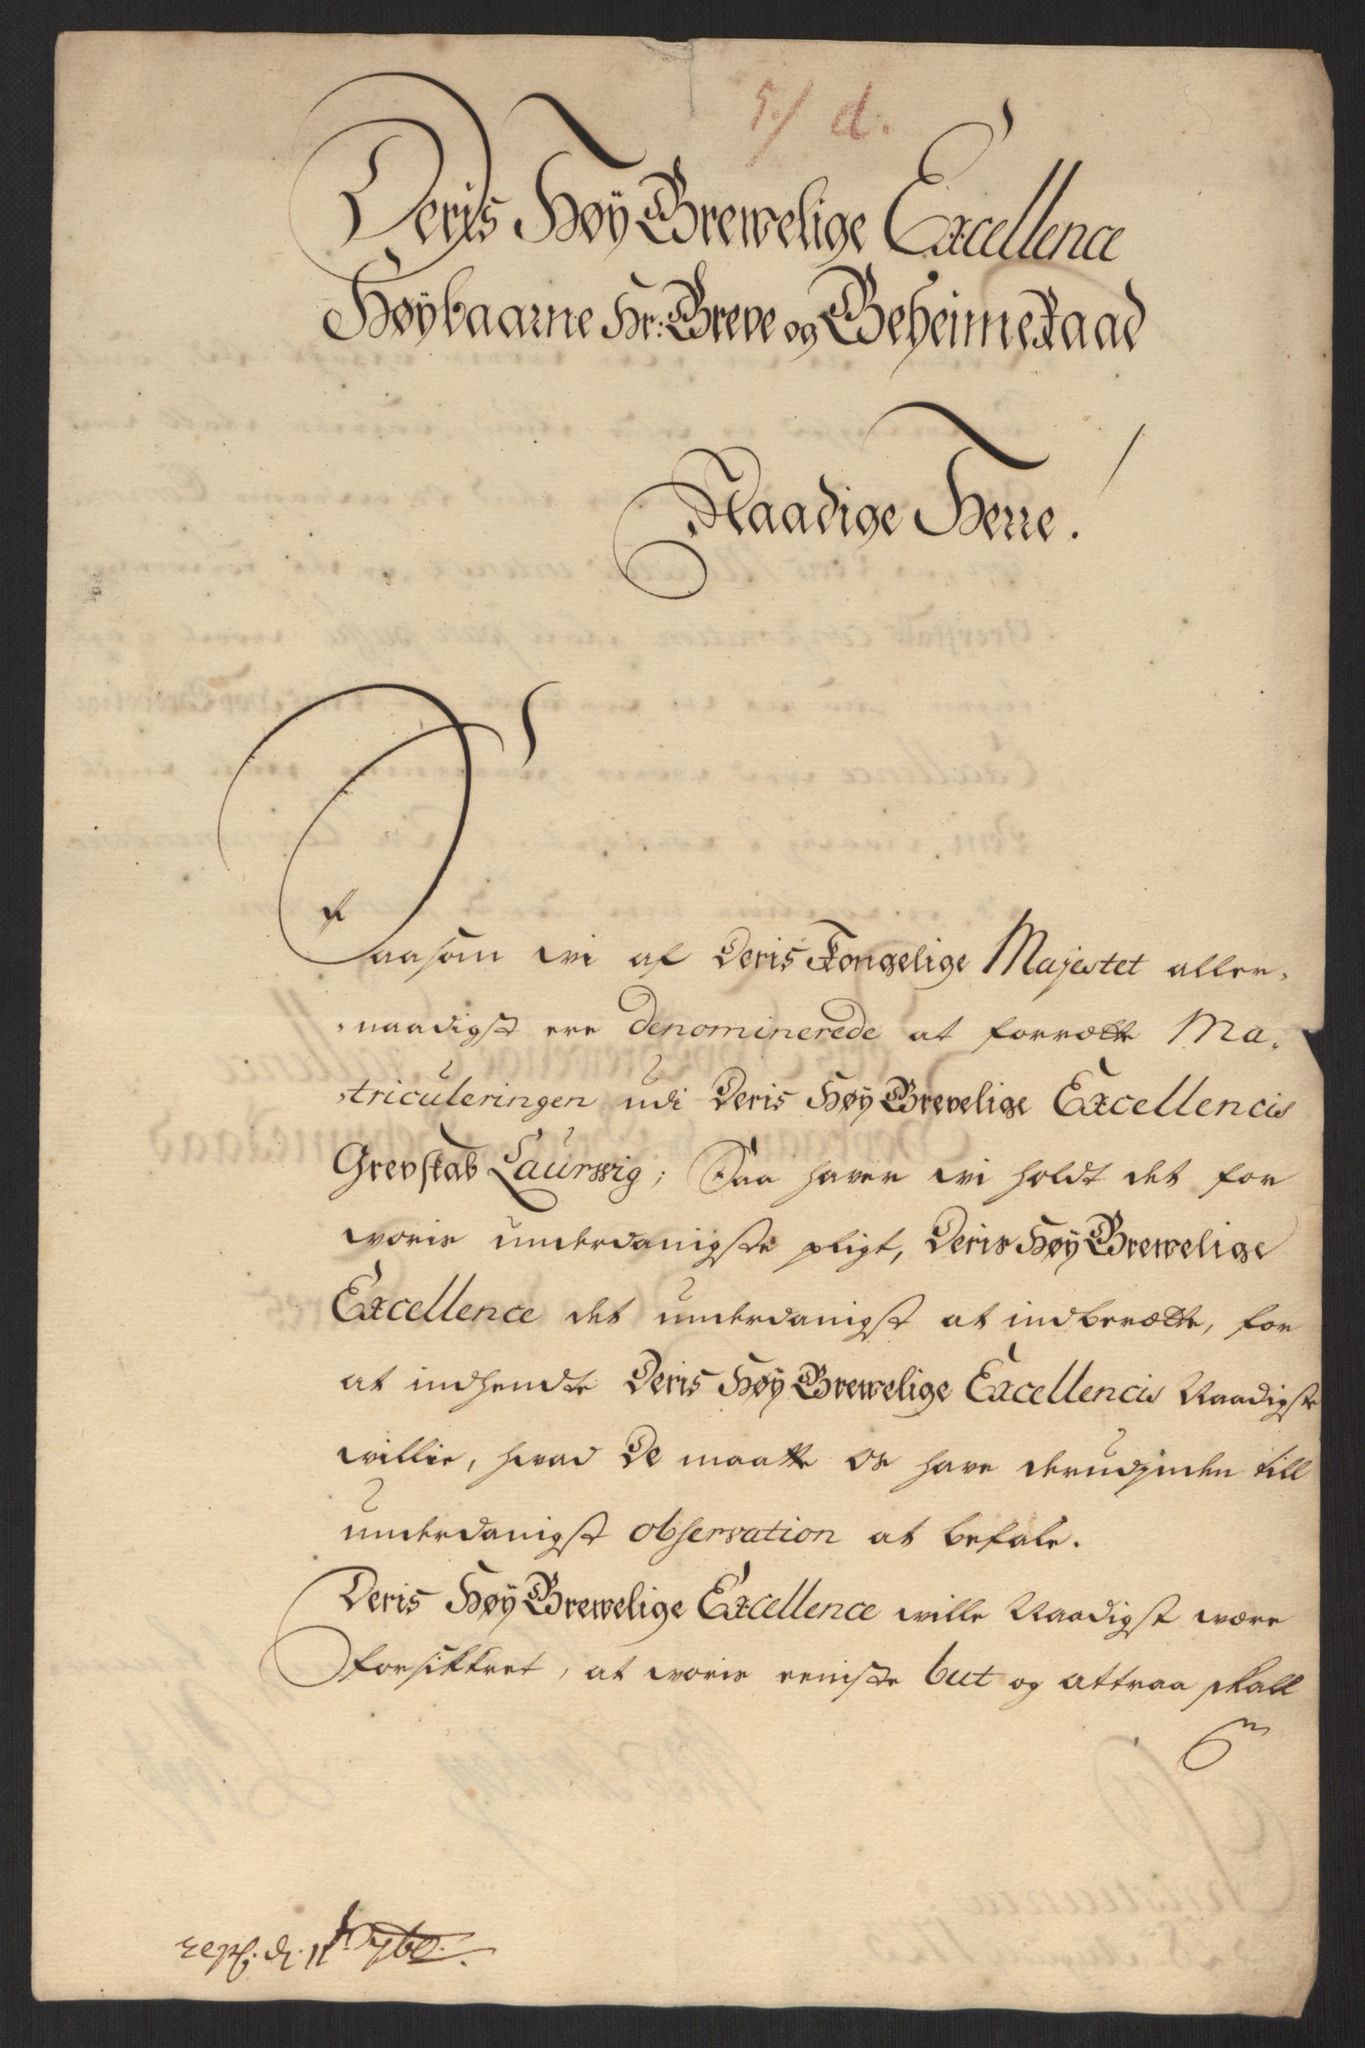 5./ d.
Deris Høÿ Grewelige Excellence
Høÿbaarne Hr: Greve og Geheime Raad
Naadige Herre.
Saasom wi af Deris Kongelige Majestet aller-
naadigst ere denominerede at forrætte Ma-
triculeringen udi Deris Høÿ Grevelige Excellencis
Grevskab Laurwig; Saa haver wi holdt det for
woris underdanigste pligt, Deris Høÿ Grewelige
Excellence det underdanigst at indberætte, for
at indhendte Deris Høÿ Grewelige Excellencis Naadigste
willie, hvad De maatte os have derudjnden till
underdanigst observation at befale.
Deris Høÿ Grewelige Excellence wille Naadigst være
forsikkret, at woris eeniste but og attraa skall